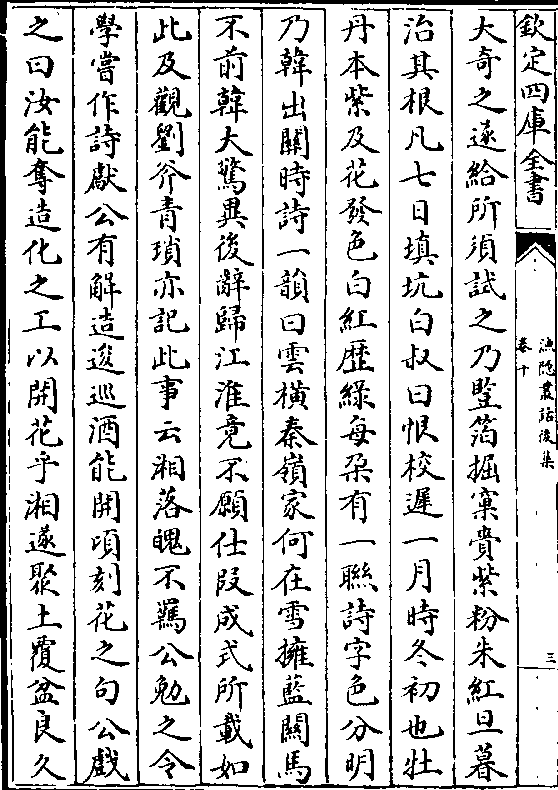 欽定四庫全書
漁隱叢話後集
卷十
三
大奇之遂給所須試之乃豎箔掘窠賫紫粉朱紅旦暮
治其根凡七日填坑白叔曰恨校遲一月時冬初也牡
丹本紫及花發色白紅歴綠每朶有一聯詩字色分明
乃韓出關時詩一韻曰雲横秦嶺家何在雪擁藍關馬
不前韓大驚異後辭歸江淮竟不願仕叚成式所載如
此及觀劉斧青瑣亦記此事云湘落魄不羈公勉之令
學嘗作詩獻公有解造逡巡酒能開頃刻花之句公戲
之曰汝能奪造化之工以開花乎湘遂聚土覆盆良久